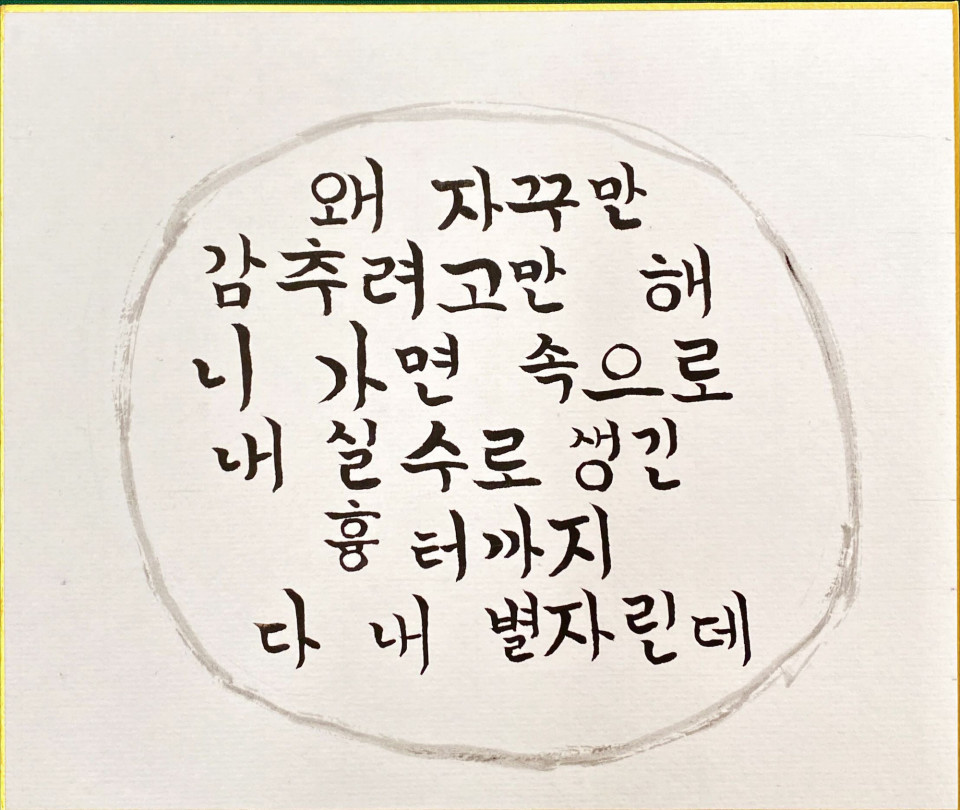 왜 자꾸만
감추려고만 해
니 가면 속으로
내 실수로 생긴
흉터까지
다 내 별자린데